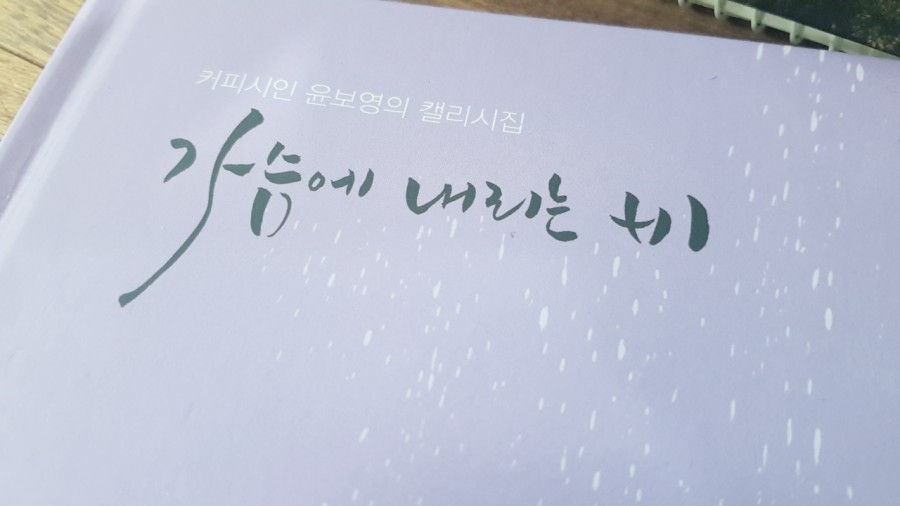 커피시인 윤보영의 캘리시집
가슴에 내리는 비